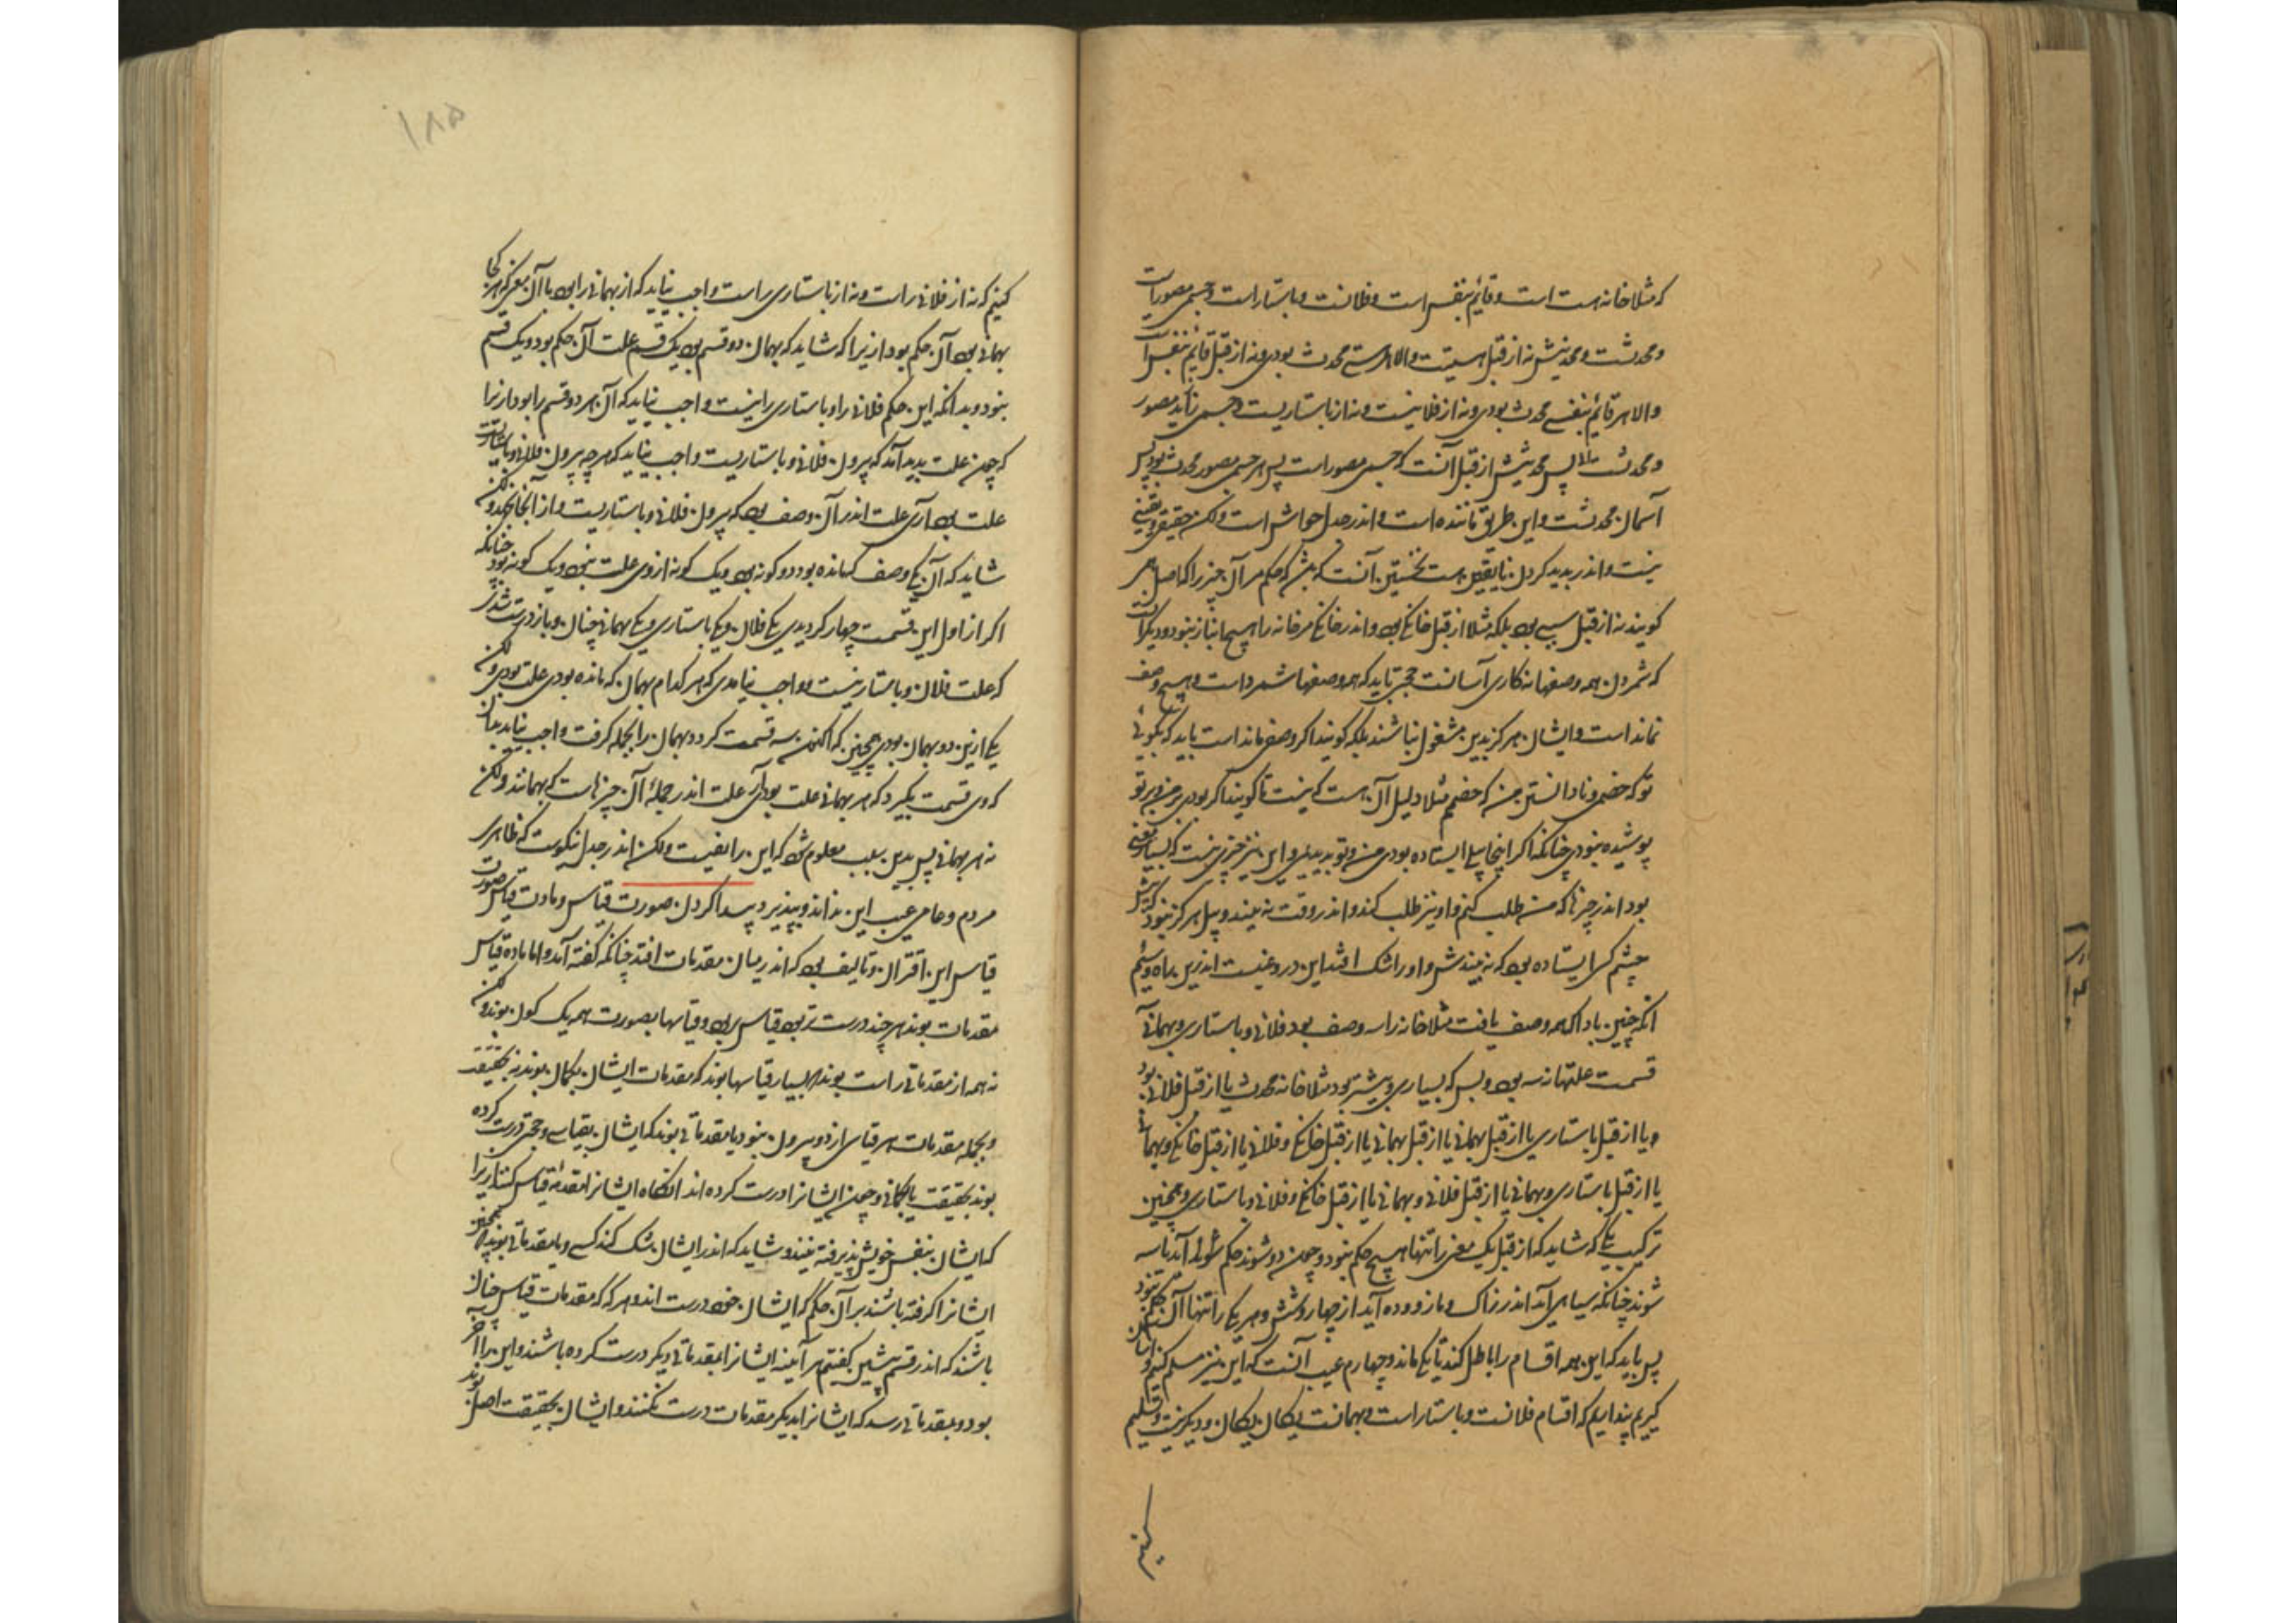 که مثلا خانه هست است و قائم بنفس است و فلانست و باستار است و جسمی مصور است
و محدثست و محدثیش نه از قبل هستیست والا هر هستی محدث بودی و نه از قبل قائم بنفس است
والا هر قائم بنفسی محدث بودی و نه از فلانیست و نه از باستاریست و جسمی نآید مصور
و محدثست والا پس محدثیش از قبل آنست که جسمی مصور است پس هر جسمی مصور محدث بود پس
آسمان محدثست و این طریق ماننده است و اندر جدل خواش است ولکن حقیقی و یقینی
نیست و اندر پدید کردن نایقینی هست نخستین آنست که بشد که حکم مر آن چیز را که اصل همی
کویند نه از قبل سببی بی بلکه مثلا از قبل خانکی بی و اندر خانکی مر خانه را هیچ انباز نبود و دیکر آنست
که شمردن همه وصفها نه کاری آسانست حجتی باید که همه وصفها شمرد است و هیچ وصف
نماند است و ایشان هرکز بدین مشغول نباشند بلکه کویند اکر وصفی ماند است باید که بکوئی
تو که خصمی و نادانستن من که خصمم مثلا دلیل آن هست که نیست تا کویند اکر بودی بر من و بر تو
پوشیده نبودی چنانکه اکر اینجا پیلی ایستاده بودی من و تو بدیدیمی و این نیز چیزی نیست که بسیار معنی
بود اندر چیزها که من طلب کنم و او نیز طلب کند و اندر وقت نه بیند و پیل هرکز نبود که پیش
چشم کسی ایستاده بی که نه بیندش و او را شک افتد این دروغیست اندرین راه و سئم
آنکه چنین باد که همه وصف یافت مثلا خانه را سه وصف بود فلانی و باستاری و بهمانی آنه
قسمت علتها نه سه بی و بس که بسیاری و بیشتر بود مثلا خانه محدث یا از قبل فلانی بود
و یا از قبل باستاری یا از قبل بهمانی یا از قبل بهمانی یا از قبل خانکی و فلانی یا از قبل خانکی و بهمانی
یا از قبل باستاری و بهمانی یا از قبل فلانی و بهمانی یا از قبل خانکی و فلانی و باستاری و همچنین
ترکیب یکی که شاید که از قبل یک معنی را تنها هیچ حکم نبود و چون دو شوند حکم آید تا سه
شوند چنانکه سیاهی آید اندر زاک و مازو و ده آید از چهار و شش و هر یکی را تنها آن حکم نبود
پس باید که این همه اقسام را باطل کند تا یکی ماند و چهارم عیب آنست که این نیز مسلم کنیم و آسان
کیریم پنداریم که اقسام فلانست و باستار است و بهمانست یکان یکان و دیکر نیست و تسلیم
تسلیم
۱۸۵
کنیم که نه از فلانی راست و نه از باستاری راست واجب نیاید که از بهمانی را بی با آن معنی که هر کجا
بهمانی بی آن حکم بود ازیرا که شاید که بهمان دو قسم بی یک قسم علت آن حکم بود و یک قسم
نبود و بدانکه این حکم فلانی را و باستاری را نیست واجب نیاید که آن هر دو قسم را بود ازیرا
که چون علت پدید آمد که بیرون فلانی و باستاریست واجب نیاید که هر چه بیرون فلانی و باستاریست
علت بی آری علت اندر آن وصف بی که بیرون فلانی و باستاریست و از آنجا نجهد ولکن
شاید که آن یکی وصف که مانده بود دو کونه بی و یک کونه از وی علت بی و یک کونه نبود چنانکه
اکر از اول این قسمت چهار کردیدی یکی فلان و یکی باستاری و یکی بهمانی چنان و باز درست شدی
که علت فلان و باستار نیست واجب نیامدی که هر کدام بهمان که مانده بودی علت بودی ولکن
یکی ازین دو بهمان بودی همچنین که اکنون سه قسمت کرد و بهمان را بجمله کرفت واجب نیاید بدان
که وی قسمت بکیرد که هر بهمانی علت بودی آری علت اندر جملهٔ آن چیزهاست که بهمانند ولکن
نه هر بهمانی پس بدین سبب معلوم شد که این راه نه یقینیست ولکن اندر جدل نیکوست که ظاهری
مردم و عامی عیب این نداند و بپذیرد پیدا کردن صورت قیاس و مادت قیاس صورت
قیاس این اقتران و تالیف بی که اندر میان مقدمات افتد چنانکه کفته آمد و اما ماده قیاس
مقدمات بوند هر چند درست تر بی قیاس بی و قیاسها بصورت همه یک کون بوند ولکن
نه همه از مقدماتی راست بوند که بسیار قیاسها بوند که مقدمات ایشان بکمان بوند نه بحقیقت
و بجمله مقدمات هر قیاسی از دو بیرون نبود یا مقدماتی بوند که ایشان بقیاسی و حجتی درست کرده
بوند بحقیقت یا بکمانی و چون ایشان را درست کرده اند آنکاه ایشان را مقدمهٔ قیاس کنند ازیرا
که ایشان بنفس خویش پذیرفته نیند و شاید که اندر ایشان شک کند کسی و یا مقدماتی بوند که همچنین
ایشانرا کرفته باشند بر آن حکم که ایشان خود درست اند و هر که که مقدمات قیاس چنان
باشند که اندر قسم پیشین کفتیم هر آینه ایشانرا بمقدماتی دیکر درست کرده باشند و این را آخر به
بود و بمقدماتی رسد که ایشانرا بدیکر مقدمات درست نکنند و ایشان بحقیقت اصل بوند